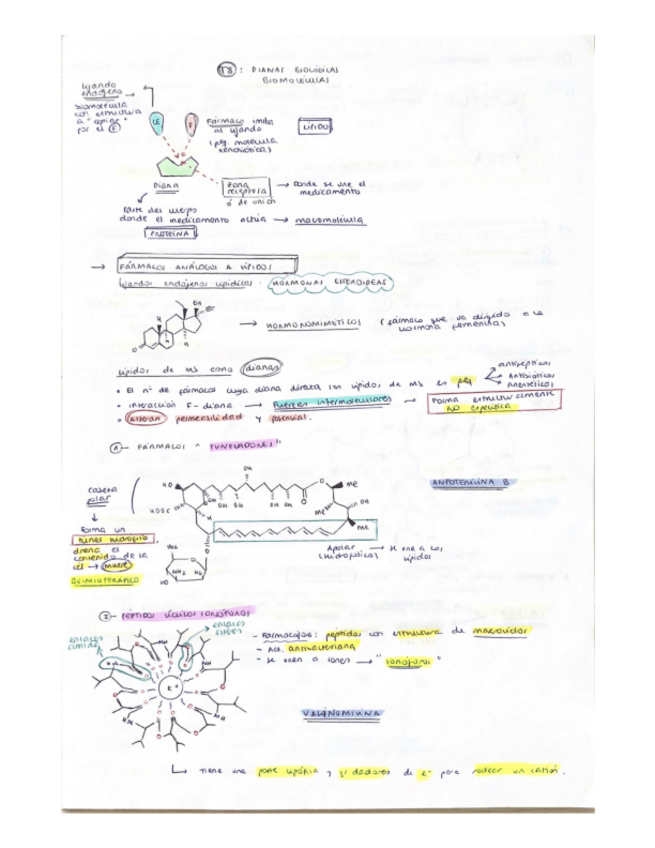 T8: DIANAS BIOLÓGICAS
BIOMOLÉCULAS
ligando
endógeno
biomolécula
con estructura
a "copiar"
por el F
LE
F
Fármaco imita
al ligando
(peq. molécula
xenobiótica)
LÍPIDO
Diana
zona
receptora
ó de unión
→ donde se une el
medicamento
Parte del cuerpo
donde el medicamento actúa → macromolécula
PROTEÍNA
→ FÁRMACOS ANÁLOGOS A LÍPIDOS
ligandos endógenos lipídicos: HORMONAS ESTEROIDEAS
OH
H
H
H
O
→ HORMONOMIMÉTICOS (fármaco que va dirigido a la
hormona femenina)
Lípidos de MB como dianas
• El nº de fármacos cuya diana directa son lípidos de MB es peq
antisépticos
Antibióticos
Anestésicos
• Interacción F-diana → Fuerzas intermoleculares → Forma estructuralmente
NO específica
• Alteran permeabilidad y potencial.
1- FÁRMACOS "TUNELADORES"
cabeza
polar
Forma un
túnel hidrófilo
drena el
contenido de la
cél → muere
QUIMIOTERÁPICO
HO
HOOC
OH
O
Me
NH2
HO
Apolar
(hidrófoba) → se une a los
lípidos
ANFOTERICINA B
2- PÉPTIDOS CÍCLICOS IONÓFOROS
enlaces
amida
enlaces
éster
K+
NH
HN
O
- Farmacóforo: péptidos con estructura de macrociclos
- Act. antibacteriana
- Se unen a iones → "ionóforos"
VALINOMICINA
↳ Tiene una parte lipófila y gr dadores de e- para rodear un catión.